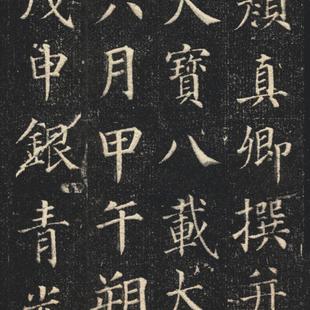 顏真卿撰并
天寶八載太
六月甲午朔
戊申銀青光